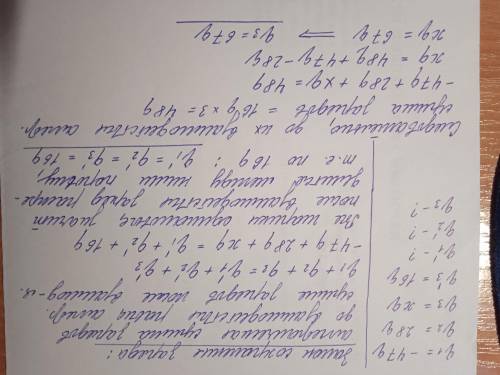 q₁ = -47q
q₂ = 28q
q₃ = xq
q₃' = 16q
q₁' - ?
q₂' - ?
q₃ - ?
Закон сохранения заряда:
алгебраическая сумма зарядов
до взаимодействия равна алгебр.
сумме зарядов после взаимод-я.
q₁ + q₂ + q₃ = q₁' + q₂' + q₃'
-47q + 28q + xq = q₁' + q₂' + 16q
Все шарики одинаковые, значит
после взаимодействия заряд
делится между ними поровну,
т.е. по 16q : q₁' = q₂' = q₃' = 16q
Следовательно, до их взаимодействия алгебр.
сумма зарядов = 16q × 3 = 48q
-47q + 28q + xq = 48q
xq = 48q + 47q - 28q
xq = 67q ⇒ q₃ = 67q